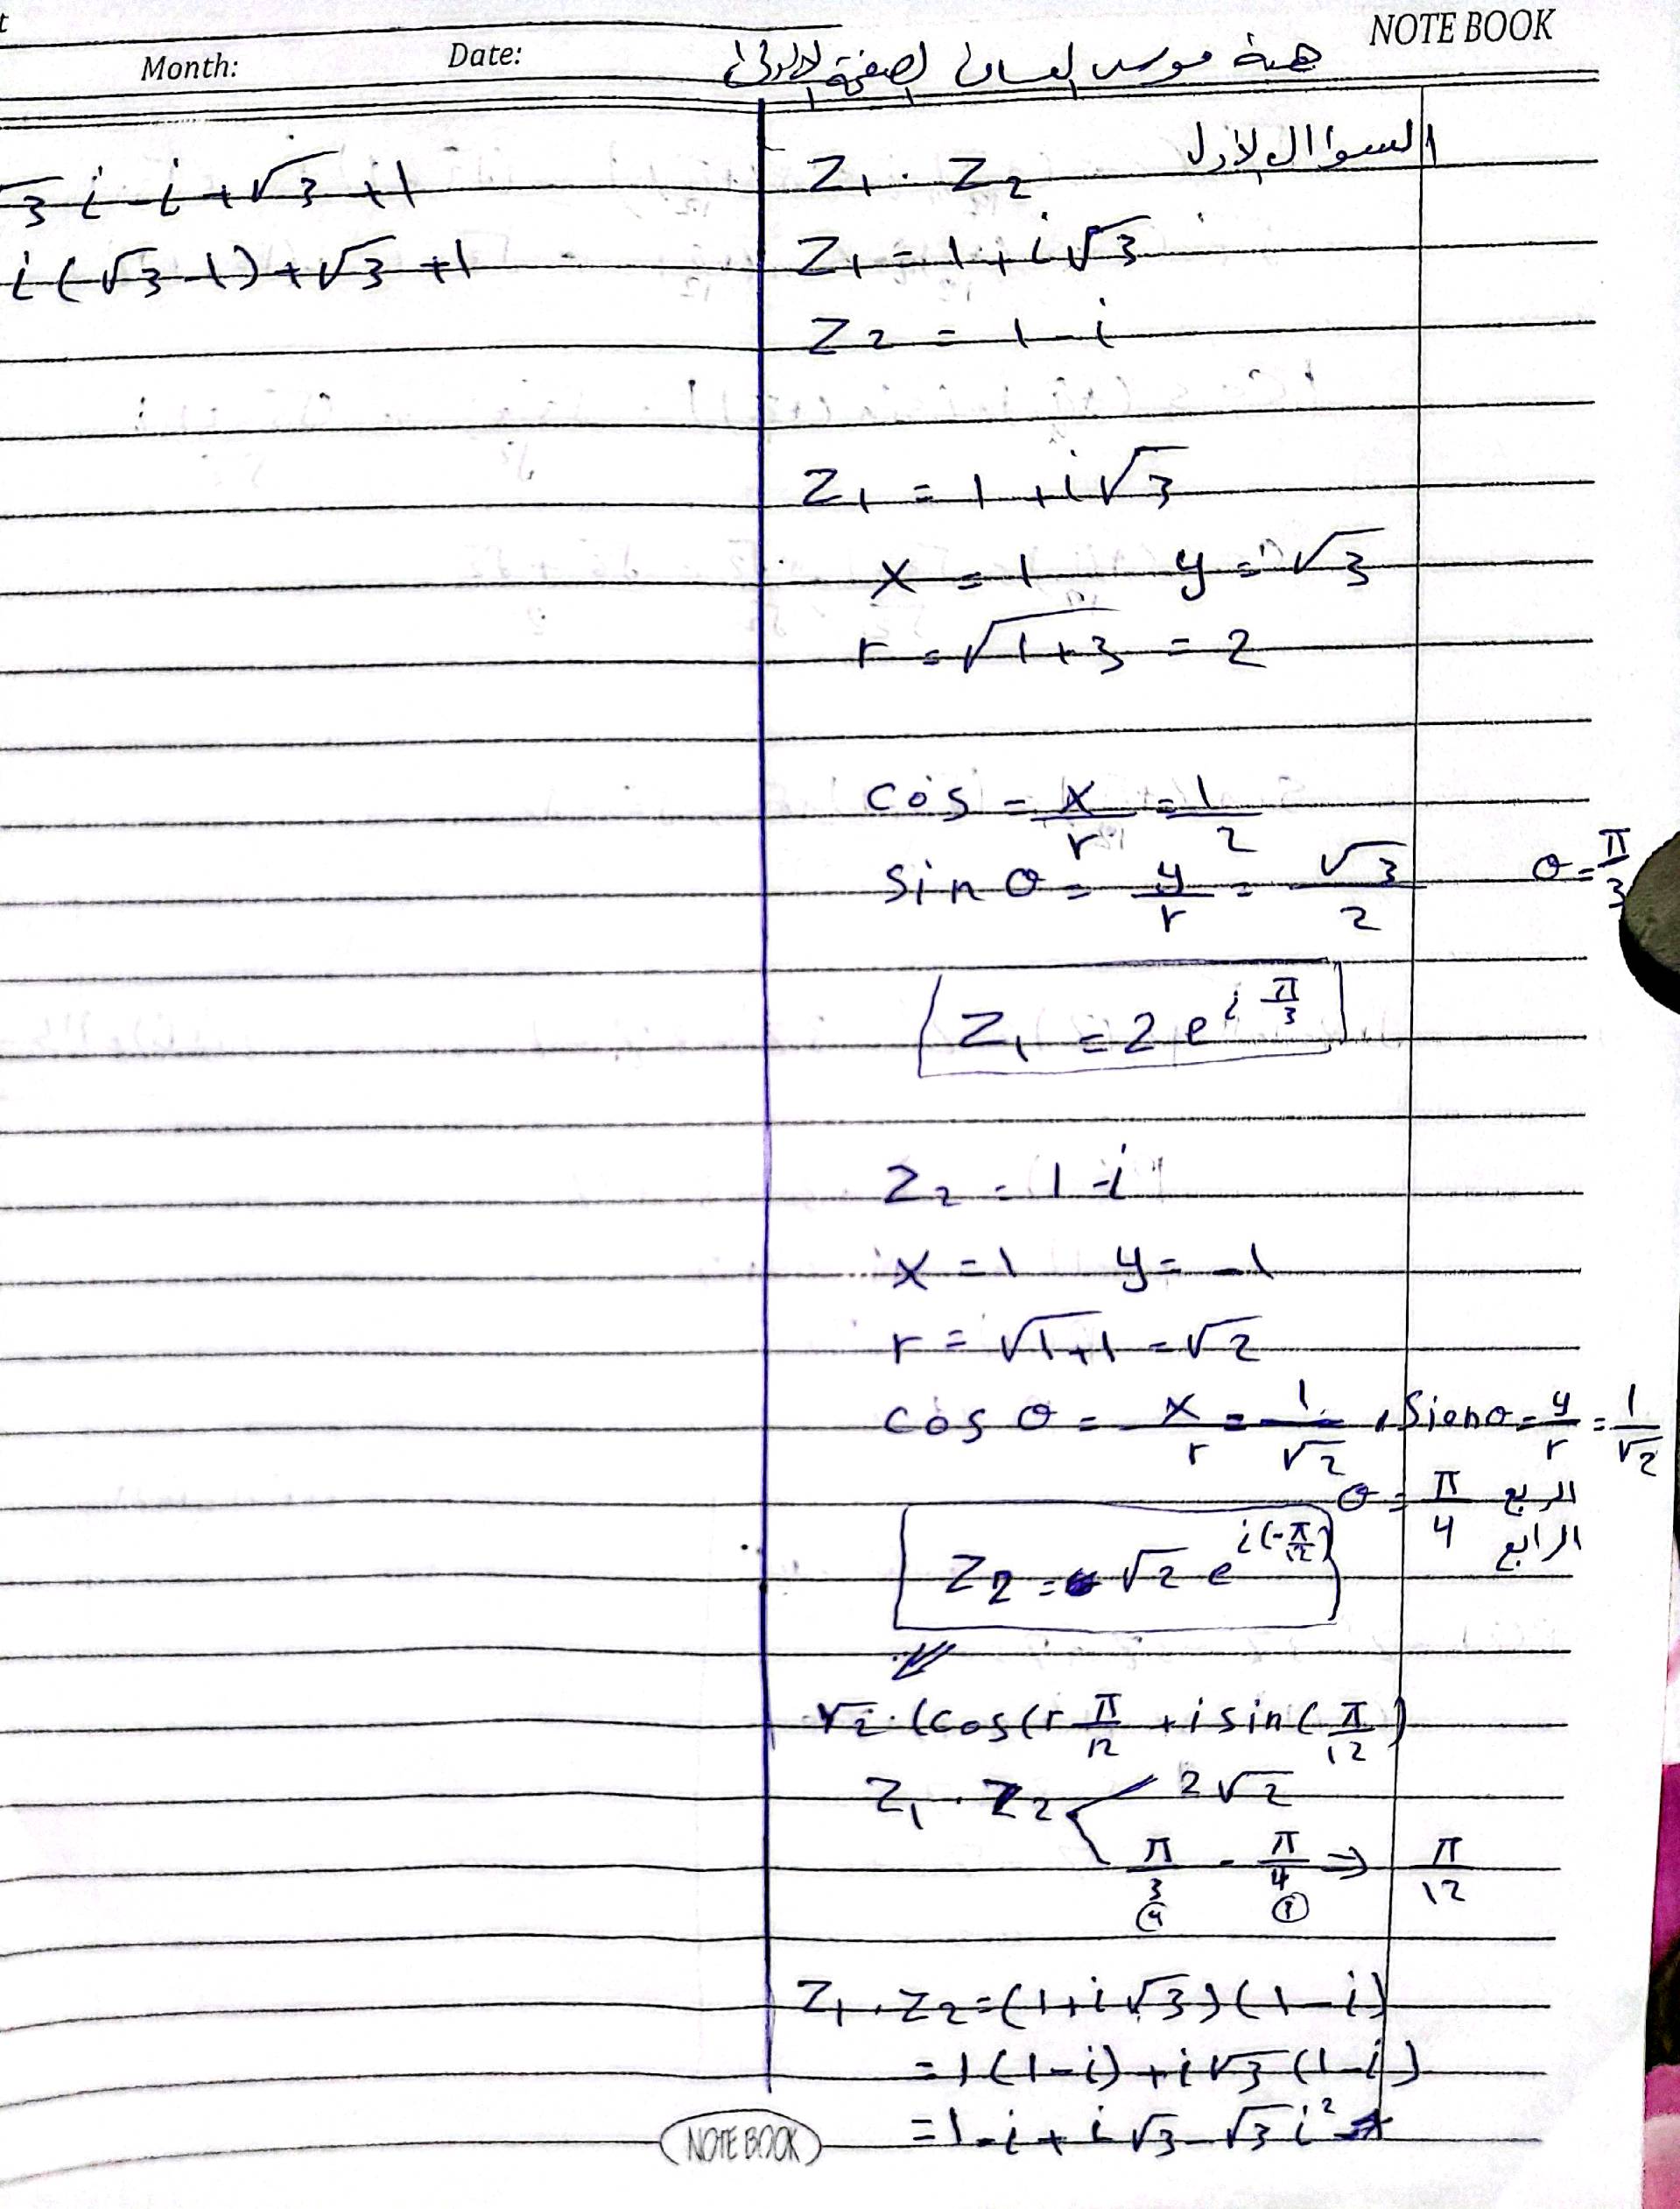 NOTE BOOK
Month: Date:
هبة موسى العساف الصفحة الاولى
السوال الاول
Z₁ · Z₂
Z₁ = 1 + i√3
Z₂ = 1 - i
Z₁ = 1 + i√3
x = 1 y = √3
r = √1+3 = 2
cos = x/r = 1/2
sin θ = y/r = √3/2 θ = π/3
Z₁ = 2 e^(i π/3)
Z₂ = 1 - i
x = 1 y = -1
r = √1+1 = √2
cos θ = x/r = 1/√2 , Sienθ = y/r = 1/√2
θ = π/4 الربع
الرابع
Z₂ = √2 e^(i(-π/12))
√2 · (cos( π/12 + i sin( π/12 )
Z₁ · Z₂ 2√2
π/3 - π/4 ⇒ π/12
Z₁ · Z₂ = (1+i√3)(1-i)
= 1(1-i) + i√3(1-i)
= 1 - i + i√3 - √3 i²
√3 i - i + √3 + 1
i(√3 - 1) + √3 + 1
NOTE BOOK